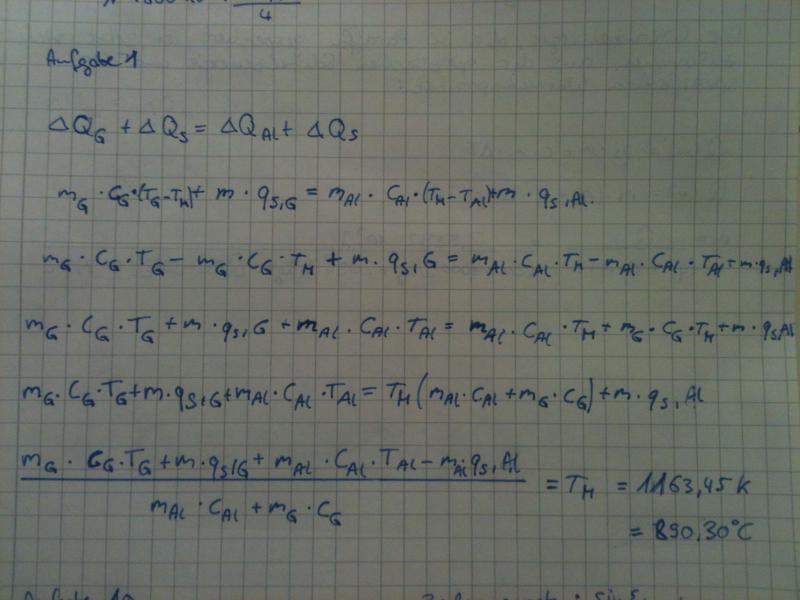 4
Aufgabe 1
ΔQ_G + ΔQ_S = ΔQ_Al + ΔQ_S
m_G · C_G · (T_G - T_M) + m · q_S,G = m_Al · C_Al · (T_M - T_Al) + m · q_S,Al.
m_G · C_G · T_G - m_G · C_G · T_M + m · q_S,G = m_Al · C_Al · T_M - m_Al · C_Al · T_Al + m · q_S,Al
m_G · C_G · T_G + m · q_S,G + m_Al · C_Al · T_Al = m_Al · C_Al · T_M + m_G · C_G · T_M + m · q_S,Al
m_G · C_G · T_G + m · q_S,G + m_Al · C_Al · T_Al = T_M (m_Al · C_Al + m_G · C_G) + m · q_S,Al
m_G · C_G · T_G + m · q_S,G + m_Al · C_Al · T_Al - m_Al · q_S,Al
m_Al · C_Al + m_G · C_G
= T_M = 1163,45 K
= 890,30°C